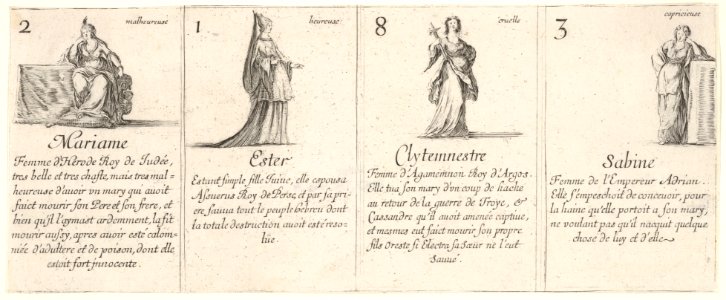 2
malheureuse
Mariame
Femme d'Hérode Roy de Judée,
tres belle et tres chaste, mais tres mal=
heureuse d'auoir vn mary qui auoit
faict mourir son Pere et son frere, et
bien qu'il l'aymast ardemment, la fit
mourir aussy, apres auoir esté calom=
niée d'adultere et de poison, dont elle
estoit fort innocente.
1
heureuse
Ester
Estant simple fille Juiue, elle espousa
Assuerus Roy de Perse, et par sa prie
re, sauua tout le peuple hebreu dont
la totale destruction auoit esté reso=
lüe.
8
cruelle
Clytemnestre
Femme d'Agamemnon Roy d'Argos.
Elle tua son mary d'vn coup de hache
au retour de la guerre de Troye, &
Cassandre qu'il auoit amenée captiue,
et mesmes eut faict mourir son propre
fils Oreste si Electra sa Sœur ne l'eut
sauué.
3
capricieuse
Sabine
Femme de l'Empereur Adrian.
Elle s'empeschoit de conceuoir, pour
la haine qu'elle portoit a son mary,
ne voulant pas qu'il nacquit quelque
chose de luy et d'elle